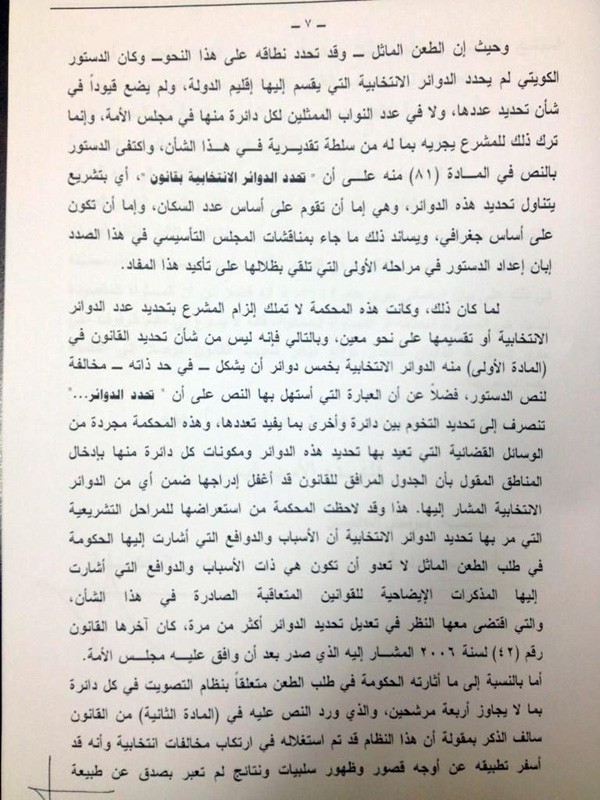 ــ ٧ ــ
وحيث إن الطعن الماثل ــ وقد تحدد نطاقه على هذا النحو ــ وكان الدستور
الكويتي لم يحدد الدوائر الانتخابية التي يقسم إليها إقليم الدولة، ولم يضع قيوداً في
شأن تحديد عددها، ولا في عدد النواب الممثلين لكل دائرة منها في مجلس الأمة، وإنما
ترك ذلك للمشرع يجريه بما له من سلطة تقديرية فــي هــذا الشأن، واكتفى الدستور
بالنص في المــادة (٨١) منه علــى أن " تحدد الدوائر الانتخابية بقانون "، أي بتشريع
يتناول تحديد هذه الدوائر، وهي إما أن تقوم على أساس عدد السكان، وإما أن تكون
على أساس جغرافي، ويساند ذلك ما جاء بمناقشات المجلس التأسيسي في هذا الصدد
إبان إعداد الدستور في مراحله الأولى التي تلقي بظلالها على تأكيد هذا المفاد.
لما كان ذلك، وكانت هذه المحكمة لا تملك إلزام المشرع بتحديد عدد الدوائر
الانتخابية أو تقسيمها على نحو معين، وبالتالي فإنه ليس من شأن تحديد القانون في
(المادة الأولى) منه الدوائر الانتخابية بخمس دوائر أن يشكل ــ في حد ذاته ــ مخالفة
لنص الدستور، فضلاً عن أن العبارة التي أستهل بها النص على أن " تحدد الدوائر..."
تنصرف إلى تحديد التخوم بين دائرة وأخرى بما يفيد تعددها، وهذه المحكمة مجردة من
الوسائل القضائية التي تعيد بها تحديد هذه الدوائر ومكونات كل دائرة منها بإدخال
المناطق المقول بأن الجدول المرافق للقانون قد أغفل إدراجها ضمن أي من الدوائر
الانتخابية المشار إليها. هذا وقد لاحظت المحكمة من استعراضها للمراحل التشريعية
التي مر بها تحديد الدوائر الانتخابية أن الأسباب والدوافع التي أشارت إليها الحكومة
في طلب الطعن الماثل لا تعدو أن تكون هي ذات الأسباب والدوافع التي أشارت
إليها المذكرات الإيضاحية للقوانين المتعاقبة الصادرة في هذا الشأن،
والتي اقتضى معها النظر في تعديل تحديد الدوائر أكثر من مرة، كان آخرها القانون
رقم (٤٢) لسنة ٢٠٠٦ المشــار إليه الذي صدر بعد أن وافق عليــه مجلــس الأمة.
أما بالنسبة إلى ما أثارته الحكومة في طلب الطعن متعلقاً بنظام التصويت في كل دائرة
بما لا يجاوز أربعة مرشحين، والذي ورد النص عليه في (المادة الثانية) من القانون
سالف الذكر بمقولة أن هذا النظام قد تم استغلاله في ارتكاب مخالفات انتخابية وأنه قد
أسفر تطبيقه عن أوجه قصور وظهور سلبيات ونتائج لم تعبر بصدق عن طبيعة